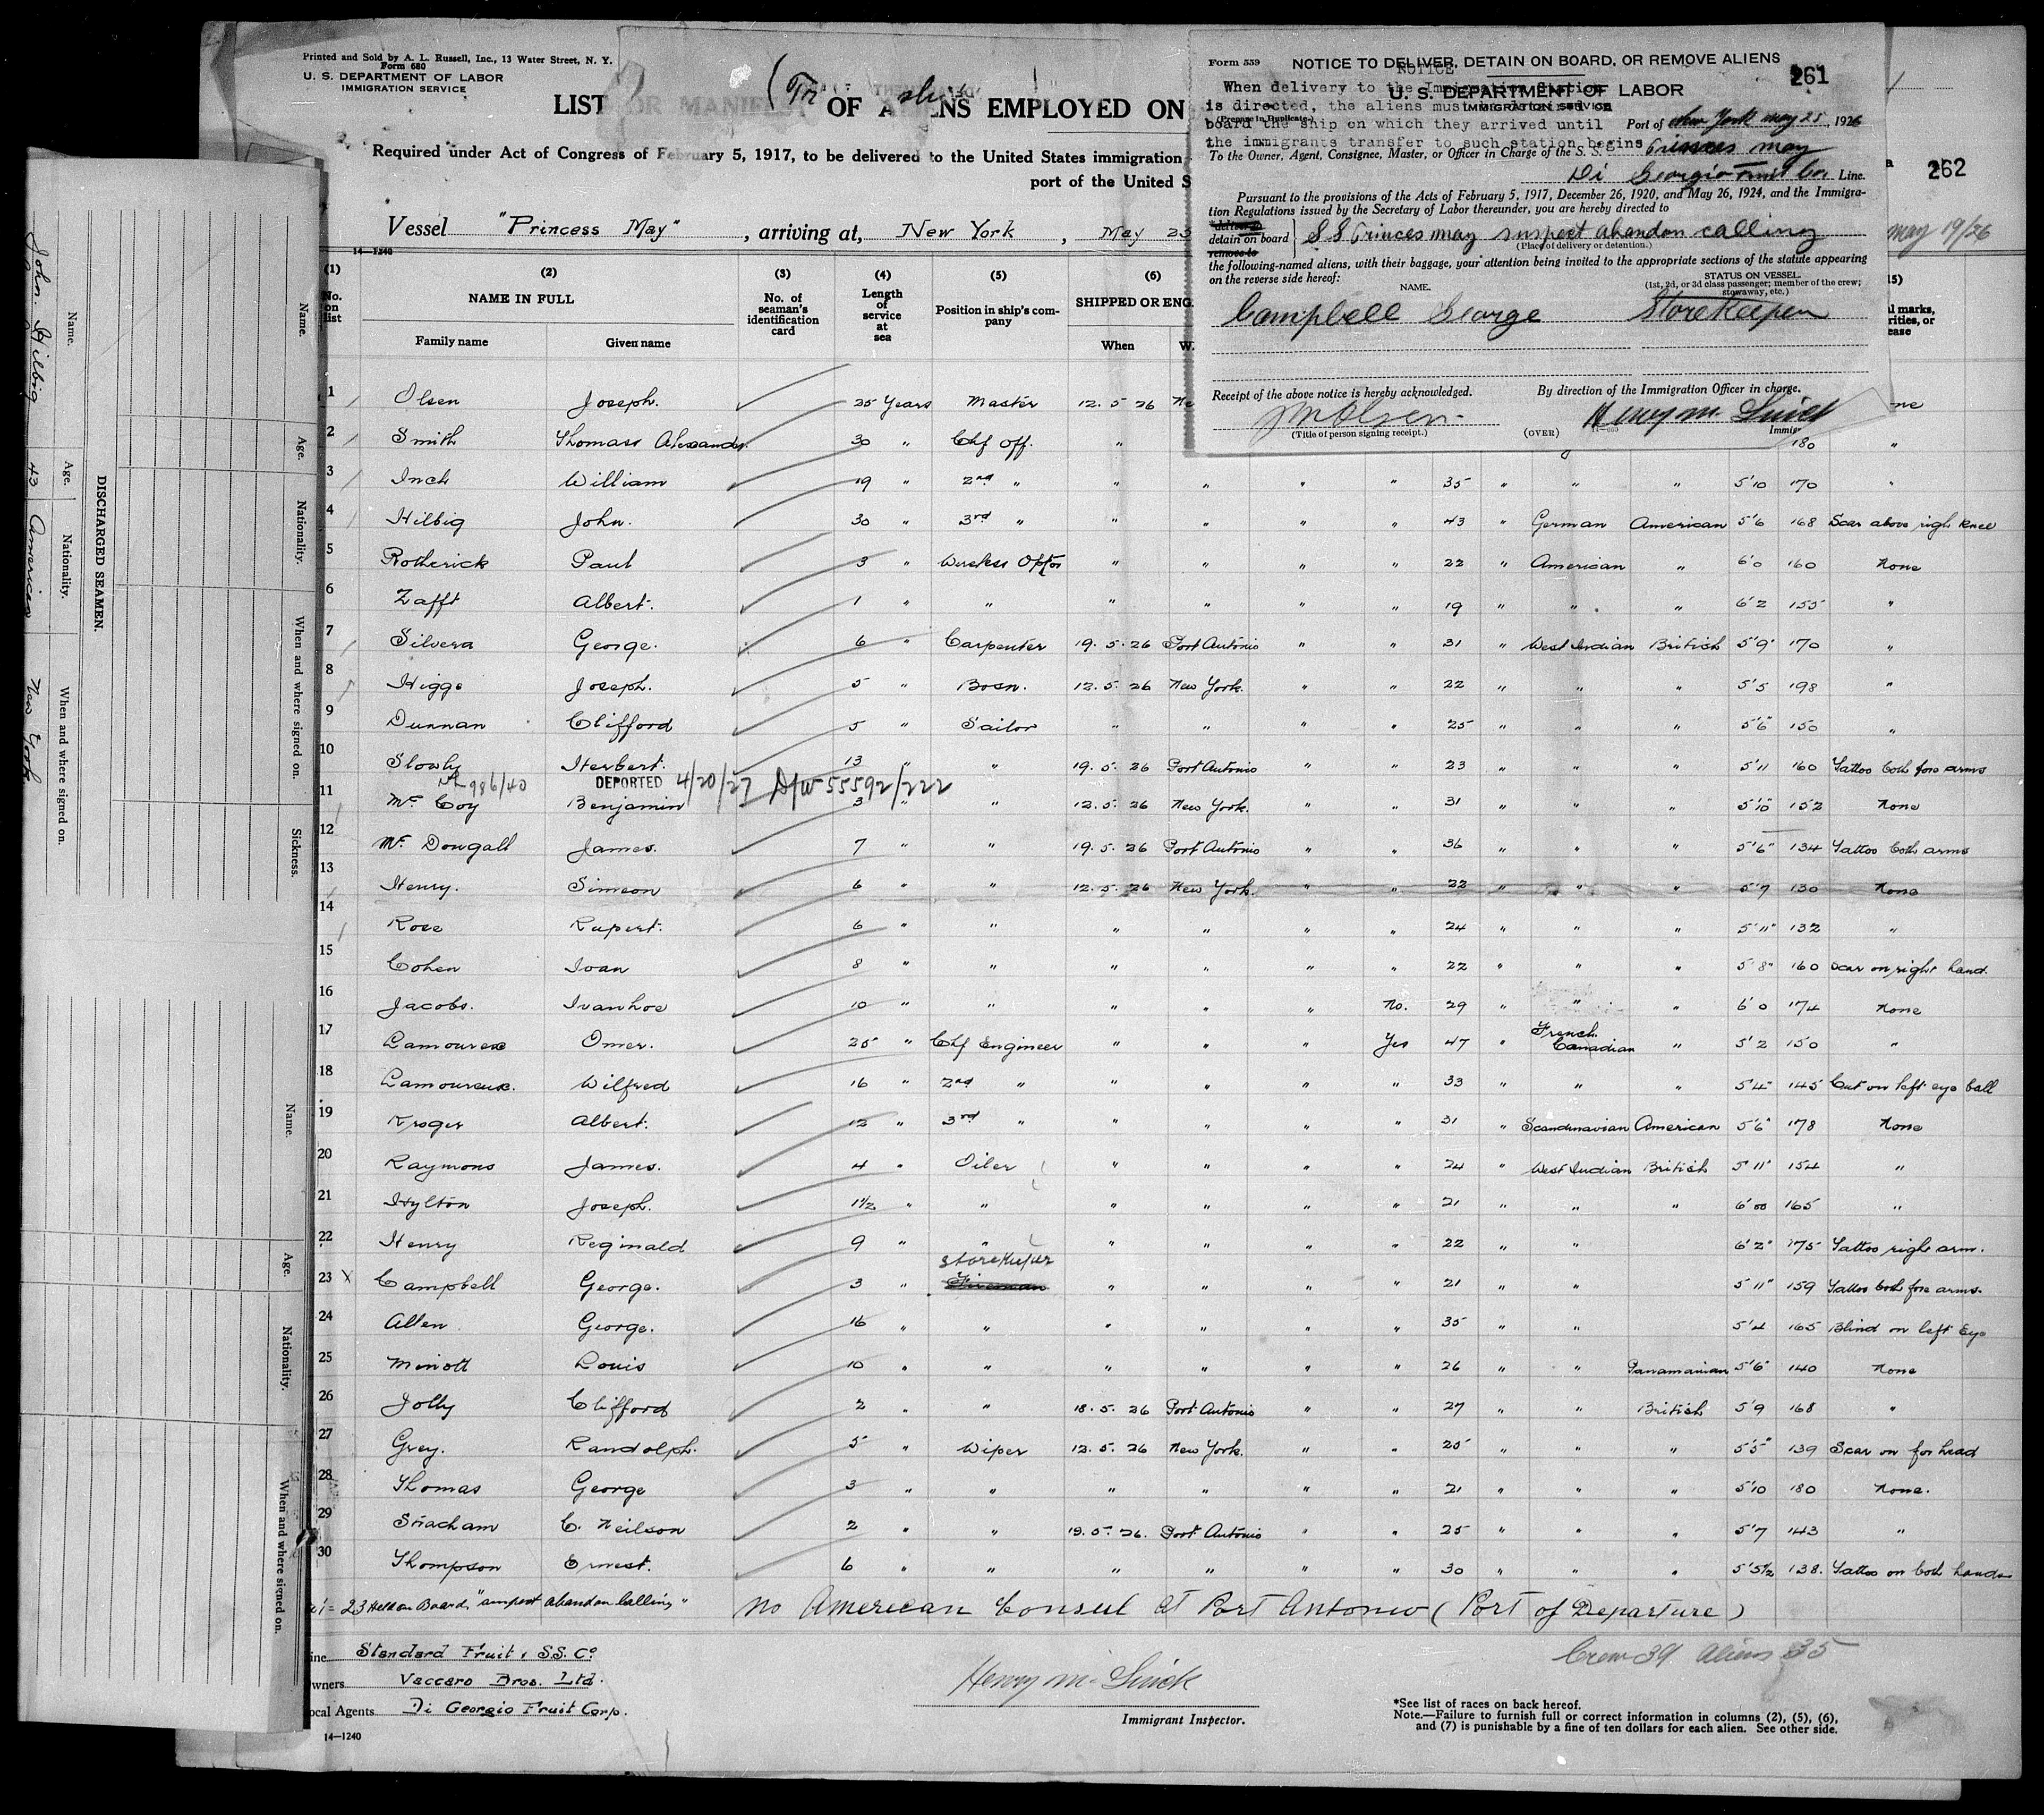 Printed and Sold by A. L. Russell, Inc., 13 Water Street, N. Y.
Form 680
U. S. DEPARTMENT OF LABOR
IMMIGRATION SERVICE
LIST OR MANIFEST OF ALIENS EMPLOYED ON
Required under Act of Congress of February 5, 1917, to be delivered to the United States immigration
port of the United S
Vessel "Princess May", arriving at, New York, May 23
14—1240
Form 559 NOTICE TO DELIVER, DETAIN ON BOARD, OR REMOVE ALIENS 261
NOTICE
When delivery to the Immigration Station
U. S. DEPARTMENT OF LABOR
is directed, the aliens must
IMMIGRATION SERVICE
(Prepare in Duplicate.)
board the ship on which they arrived until
Port of New York May 25, 1926
the immigrants transfer to such station begins
To the Owner, Agent, Consignee, Master, or Officer in Charge of the S. S. Princes may
Di Georgio Fruit Co. Line.
Pursuant to the provisions of the Acts of February 5, 1917, December 26, 1920, and May 26, 1924, and the Immigra-
tion Regulations issued by the Secretary of Labor thereunder, you are hereby directed to
deliver to
detain on board } S S Princes may suspect abandon calling
remove to
(Place of delivery or detention.)
the following-named aliens, with their baggage, your attention being invited to the appropriate sections of the statute appearing
on the reverse side hereof:
NAME. STATUS ON VESSEL.
(1st, 2d, or 3d class passenger; member of the crew; stowaway, etc.)
Campbell George Storekeeper
Receipt of the above notice is hereby acknowledged. By direction of the Immigration Officer in charge.
J M Olsen Henry M.
(Title of person signing receipt.) (OVER) Immig
262
May 19/26
(1) (2) (3) (4) (5) (6) 15)
No. on list NAME IN FULL No. of seaman's identification card Length of service at sea Position in ship's company SHIPPED OR ENG.
Family name Given name When W
l marks, rities, or ease
1 Olsen Joseph. 25 Years Master 12. 5 26 Ne ne
2 Smith Thomass Alexander 30 " Chf Off. " 180 "
3 Inch William 19 " 2nd " " " " " 35 " " " 5'10 170 "
4 Hilbig John. 30 " 3rd " " " " " 43 " German American 5'6 168 Scar above righ knee
5 Rotherick Paul 3 " Wireless Optor " " " " 22 " American " 6'0 160 None
6 Zafft Albert. 1 " " " " " " 19 " " " 6'2 155 "
7 Silvera George. 6 " Carpenter 19. 5. 26 Port Antonio " " 31 " West Indian British 5'9" 170 "
8 Higgs Joseph. 5 " Bosn. 12. 5. 26 New York. " " 22 " " " 5'5 198 "
9 Dunnan Clifford 5 " Sailor " " " " 25 " " " 5'6" 150 "
10 Slowly Herbert. 13 " " 19. 5. 26 Port Antonio " " 23 " " " 5'11 160 Tattoo both fore arms
986/40 DEPORTED 4/20/27 D/W 55592/222
11 Mc Coy Benjamin 3 " " 12. 5. 26 New York. " " 31 " " " 5'10" 152 None
12 Mc Dougall James. 7 " " 19. 5. 26 Port Antonio " " 36 " " " 5'6" 134 Tattoo both arms
13 Henry. Simeon 6 " " 12. 5. 26 New York. " " 22 " " " 5'7 130 None
14 Rose Rupert. 6 " " " " " " 24 " " " 5'11" 132 "
15 Cohen Ivan 8 " " " " " " 22 " " " 5'8" 160 Scar on right hand.
16 Jacobs. Ivanhoe 10 " " " " " No. 29 " " " 6'0 174 None
17 Lamoureux Omer. 25 " Chf Engineer " " " Yes 47 " French. Canadian " 5'2 150 "
18 Lamoureux. Wilfred 16 " 2nd " " " " " 33 " " " 5'4" 145 Cut on left eye ball
19 Kroger Albert. 12 " 3rd " " " " " 31 " Scandinavian American 5'6" 178 None
20 Raymons James. 4 " Oiler " " " " 24 " West Indian British 5'11" 154 "
21 Hylton Joseph. 1 1/2 " " " " " " 21 " " " 6'00 165 "
22 Henry Reginald 9 " " " " " " 22 " " 6'2" 175 Tattoo righ arm.
storekeeper
23 X Campbell George. 3 " Fireman " " " " 21 " " 5'11" 159 Tattoo both fore arms.
24 Allen George. 16 " " " " " " 35 " " 5'4 165 Blind on left Eye
25 Minott Louis 10 " " " " " " 26 " " Panamanian 5'6" 140 None
26 Jolly Clifford 2 " " 18. 5. 26 Port Antonio " " 27 " " British 5'9 168 "
27 Grey. Randolph. 5 " Wiper 12. 5. 26 New York. " " 25 " " " 5'5" 139 Scar on for head
28 Thomas George 3 " " " " " " 21 " " " 5'10 180 None.
29 Stracham C. Neilson 2 " " 19. 5. 26. Port Antonio " " 25 " " " 5'7 143 "
30 Thompson Ernest. 6 " " " " " " 30 " " " 5'5 1/2 138. Tattoo on both hands
23 Held on Board, abandon Calling " No American Consul at Port Antonio (Port of Departure)
ine Standard Fruit & S.S. Co
wners Vaccaro Bros. Ltd.
ocal Agents Di Georgio Fruit Corp.
14—1240
Henry M.
Immigrant Inspector.
Crew 39 Aliens 35
*See list of races on back hereof.
Note.—Failure to furnish full or correct information in columns (2), (5), (6),
and (7) is punishable by a fine of ten dollars for each alien. See other side.
DISCHARGED SEAMEN.
Name. Age. Nationality. When and where signed on.
John. Hilbig 43 American New York
Name. Age. Nationality. When and where signed on. Sickness.
Name. Age. Nationality. When and where signed on.